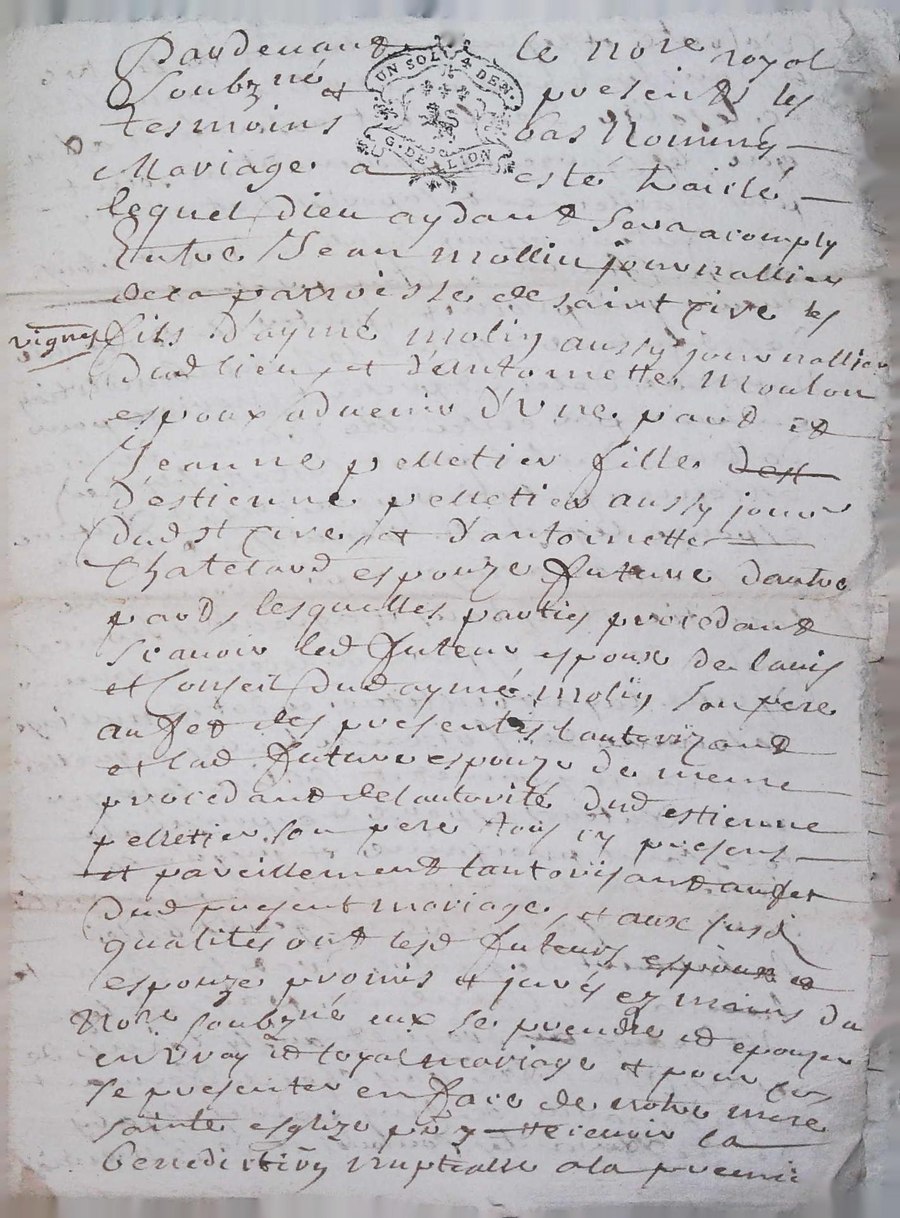 Pardevant le nore royal
soubzné et presents les
tesmoins bas nommés
UN SOL 4 DEN
G. DE LION
Mariage a esté traicté
lequel dieu aydant sera acomply
Entre Jean mollin journallier
de la parroisse de saint cire les
vignes
fils d'aymé molin aussy journallier
dud lieu et d'entoinette moulon
espoux advenir d'Une part et
Jeanne pelletier fille
d'estienne pelletier aussy jour
dud st cire et d'antoinette
Chatelard espouze future dautre
part, lesquelles parties procedant
scavoir led futeur espoux de lavis
et Conseil dud aymé molin son pere
au fet des presentes lautorizant
et lad future espouze de meme
procedant de lautorité dud estienne
pelletier son pere tous cy present
et pareillement lautorisant au fet
dud present mariage, et aux susd
qualités ont lesd futeurs espoux et
espouze promis et jurés ez mains du
Nore soubzné eux se prendre et epouzer
en vray et loyal mariage et pour ce
se presenter en face de notre mere
sainte esglize pr y recevoir la
benediction nuptialle a la premi